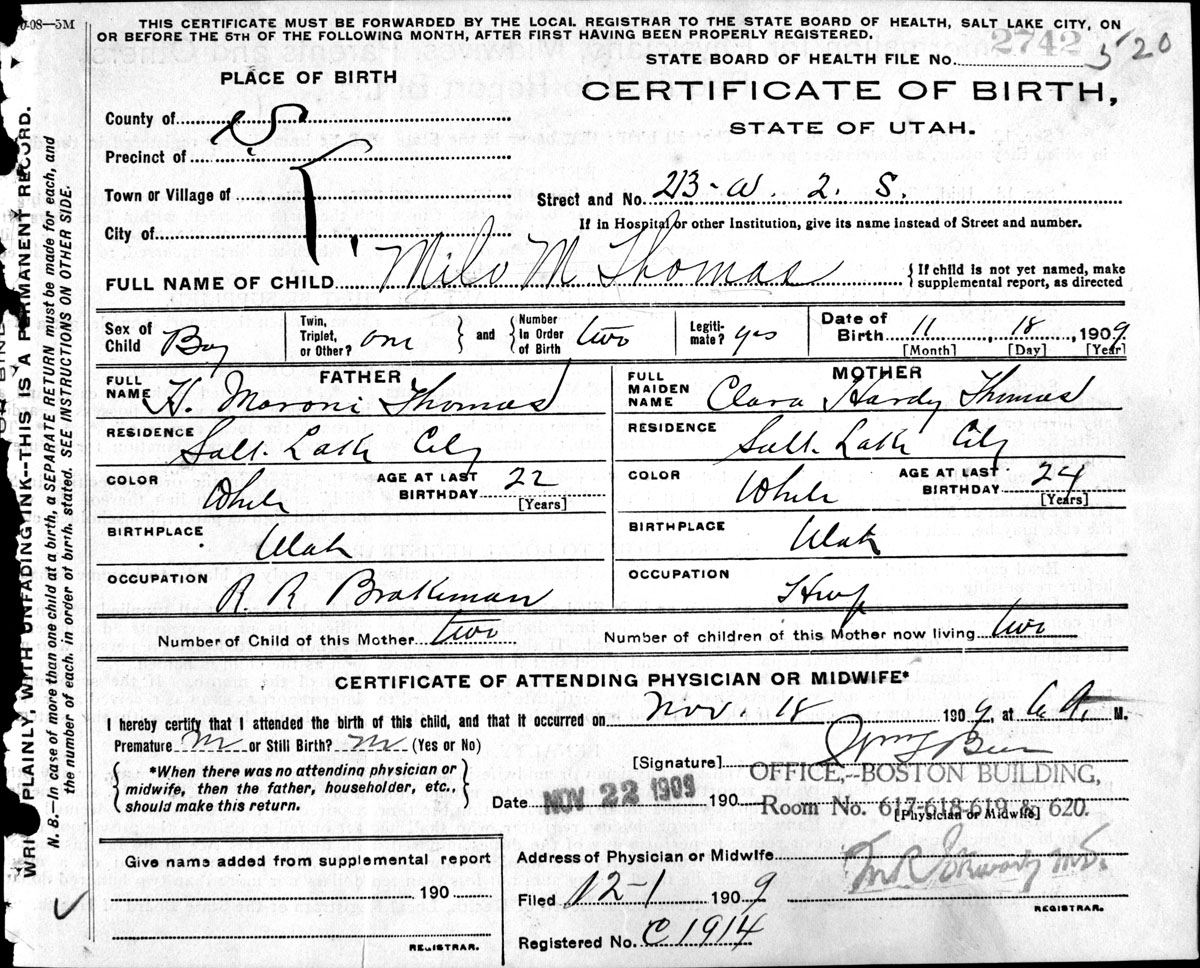 0-08—5M
THIS CERTIFICATE MUST BE FORWARDED BY THE LOCAL REGISTRAR TO THE STATE BOARD OF HEALTH, SALT LAKE CITY, ON
OR BEFORE THE 5TH OF THE FOLLOWING MONTH, AFTER FIRST HAVING BEEN PROPERLY REGISTERED.
2742
520
STATE BOARD OF HEALTH FILE No.
PLACE OF BIRTH
CERTIFICATE OF BIRTH,
STATE OF UTAH.
County of S
Precinct of
Town or Village of
Street and No. 213-W. 2. S.
City of
If in Hospital or other Institution, give its name instead of Street and number.
FULL NAME OF CHILD Milo M Thomas
{ If child is not yet named, make
supplemental report, as directed
Sex of Child Boy
Twin, Triplet, or Other? one
and
Number In Order of Birth two
Legiti-mate? yes
Date of Birth 11, 18, 1909
[Month] [Day] [Year]
FATHER
FULL NAME H. Moroni Thomas
RESIDENCE Salt Lake City
COLOR White
AGE AT LAST BIRTHDAY 22
[Years]
BIRTHPLACE Utah
OCCUPATION R. R Brakeman
MOTHER
FULL MAIDEN NAME Clara Hardy Thomas
RESIDENCE Salt Lake City
COLOR White
AGE AT LAST BIRTHDAY 24
[Years]
BIRTHPLACE Utah
OCCUPATION Hwf
Number of Child of this Mother two
Number of children of this Mother now living two
CERTIFICATE OF ATTENDING PHYSICIAN OR MIDWIFE*
I hereby certify that I attended the birth of this child, and that it occurred on Nov. 18 1909, at 6 A. M.
Premature or Still Birth? (Yes or No)
[Signature]
*When there was no attending physician or
midwife, then the father, householder, etc.,
should make this return.
OFFICE,--BOSTON BUILDING,
Date NOV 22 1909 190
Room No. 617-618-619 & 620.
[Physician or Midwife]
Give name added from supplemental report
190
REGISTRAR.
Address of Physician or Midwife
Filed 12-1 1909
REGISTRAR.
Registered No. C1914
WRITE PLAINLY, WITH UNFADING INK--THIS IS A PERMANENT RECORD.
N. B.—In case of more than one child at a birth, a SEPARATE RETURN must be made for each, and
the number of each, in order of birth, stated. SEE INSTRUCTIONS ON OTHER SIDE.